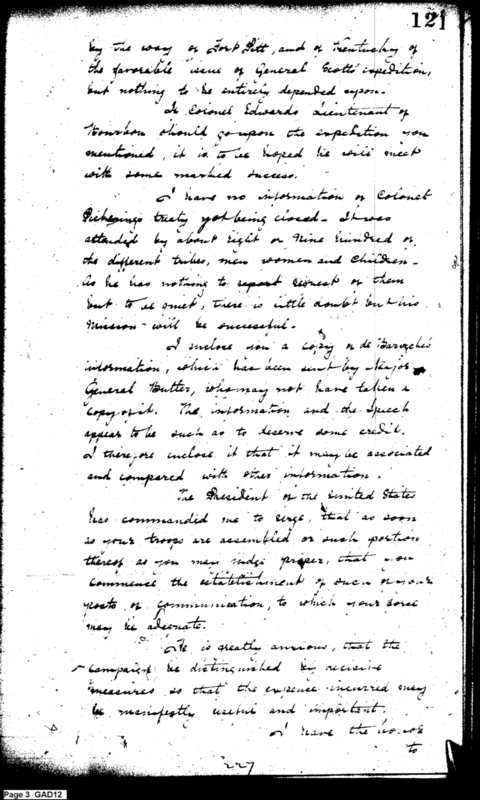 121
by the way of Fort Pitt, and of Kentucky of
the favorable issue of General Scotts expedition,
but nothing to be entirely depended upon.
If Colonel Edwards Lieutenant of
Bourbon should go upon the expedition you
mentioned, it is to be hoped he will meet
with some marked success.
I have no information of Colonel
Pickerings treaty yet being closed. It was
attended by about eight or Nine hundred of
the different tribes, men women and Children.
As he has nothing to request of them
but to be quiet, there is little doubt but his
Mission will be successful.
I enclose you a copy of de Bartzch's
information, which has been sent by Major
General Butler, who may not have taken a
copy of it. The information and the Speech
appear to be such as to deserve some credit.
I therefore enclose it that it may be associated
and compared with other information.
The President of the United States
has commanded me to urge, that as soon
as your troops are assembled or such portion
thereof as you may judge proper, that you
commence the establishment of such of your
posts of communication, to which your force
may be adequate.
He is greatly anxious, that the
campaign be distinguished by decisive
measures so that the expence incurred may
be manifestly useful and important.
I have the honor
to
227
Page 3 GAD12